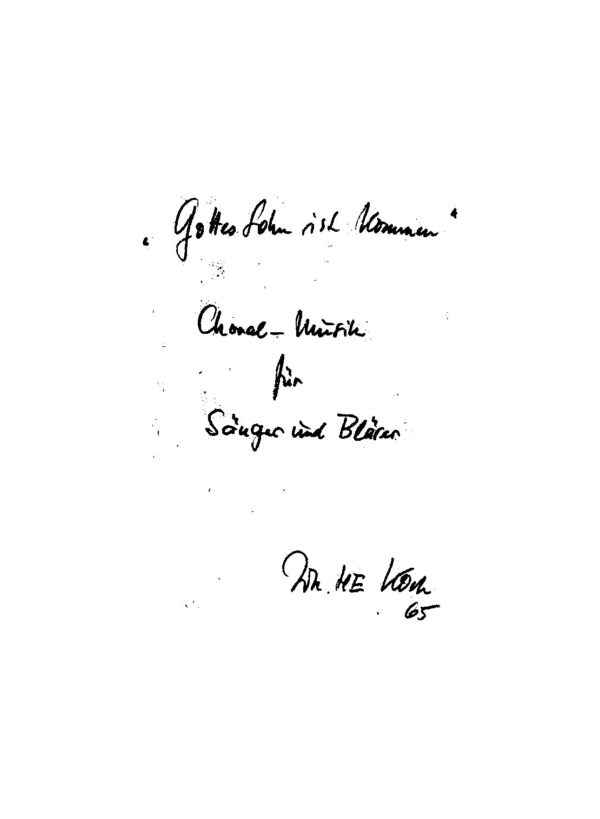 „Gottes Sohn ist kommen“
Choral-Musik
für
Sänger und Bläser
Joh. HE Koch
65